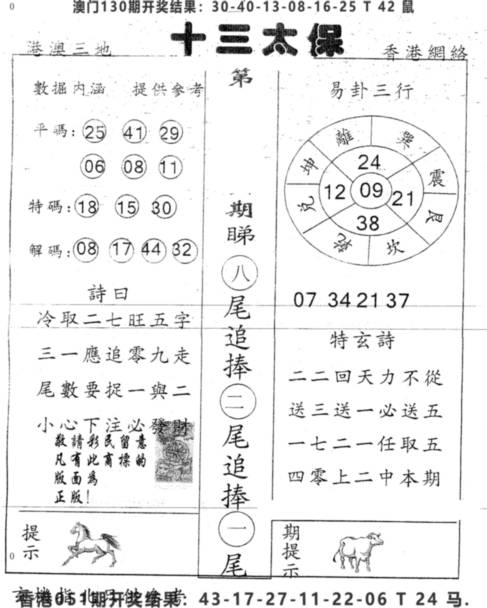 澳门130期开奖结果：30-40-13-08-16-25 T 42 鼠
十三太保
港澳三地
香港網絡
數据内涵 提供參考
平碼：25 41 29
06 08 11
特碼：18 15 30
解碼：08 17 44 32
詩曰
冷取二七旺五字
三一應追零九走
尾數要捉一與二
小心下注必發財
敬請彩民留意
凡有此商標的
版面爲
正版！
提示
第
期
睇
八
尾
追
捧
二
尾
追
捧
一
尾
易卦三行
離
巽
坤
震
兑
艮
乾
坎
24
12 09 21
38
07 34 21 37
特玄詩
二二回天力不從
送三送一必送五
一七二一任取五
四零上二中本期
期提示
香港051期开奖结果：43-17-27-11-22-06 T 24 马.